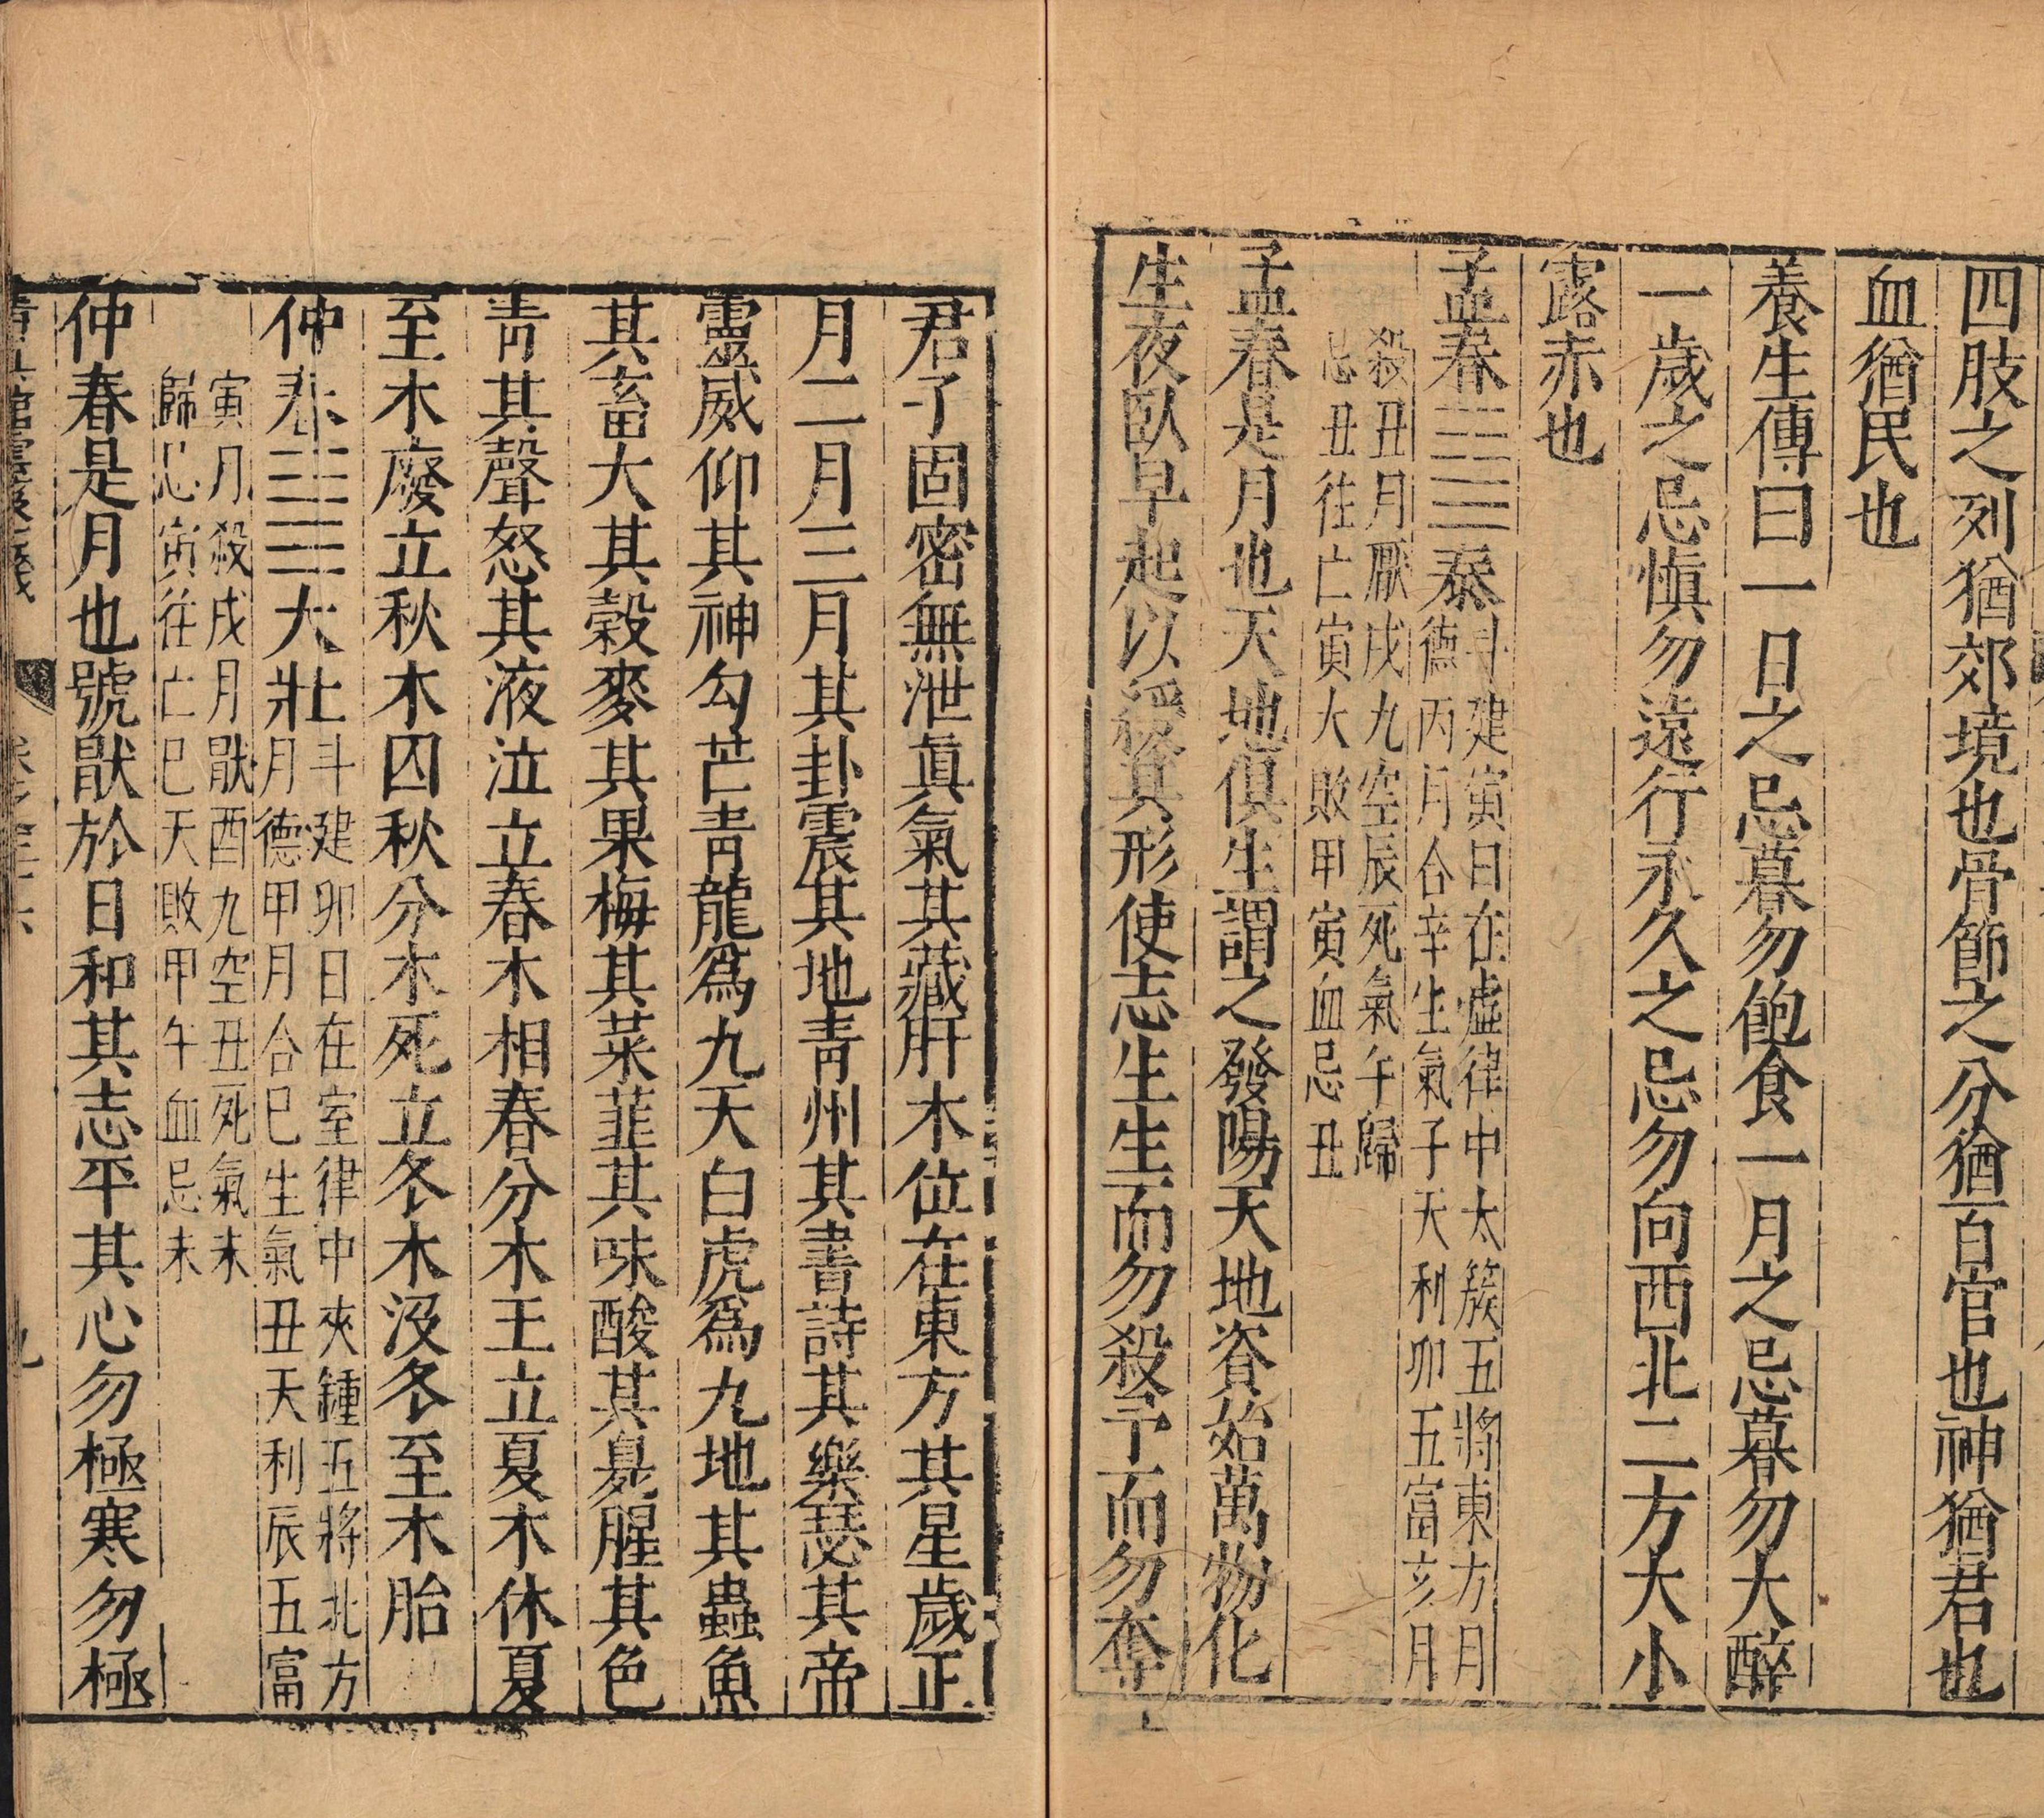 四肢之列猶郊境也骨節之分猶百官也神猶君也
血猶民也
養生傳曰一日之忌暮勿飽食一月之忌暮勿大醉
一歲之忌慎勿遠行永久之忌勿向西北二方大小
露赤也
孟春☷☰泰
斗建寅日在虛律中太簇五將東方月
德丙月合辛生氣子天利卯五富亥月
殺丑月厭戌九空辰死氣午歸
忌丑往亡寅大敗甲寅血忌丑
孟春是月也天地俱生謂之發陽天地資始萬物化
生夜臥早起以緩其形使志生生而勿殺予而勿奪
君子固密無泄眞氣其藏肝木位在東方其星歲正
月二月三月其卦震其地靑州其書詩其樂瑟其帝
靈威仰其神勾芒靑龍爲九天白虎爲九地其蟲魚
其畜犬其穀麥其果梅其菜韮其味酸其臭腥其色
靑其聲怒其液泣立春木相春分木王立夏木休夏
至木廢立秋木囚秋分木死立冬木沒冬至木胎
仲春☳☰大壯
斗建卯日在室律中夾鍾五將北方
月德甲月合巳生氣丑天利辰五富
寅月殺戌月厭酉九空丑死氣未
歸忌寅往亡巳天敗甲午血忌未
仲春是月也號厭於日和其志平其心勿極寒勿極
九